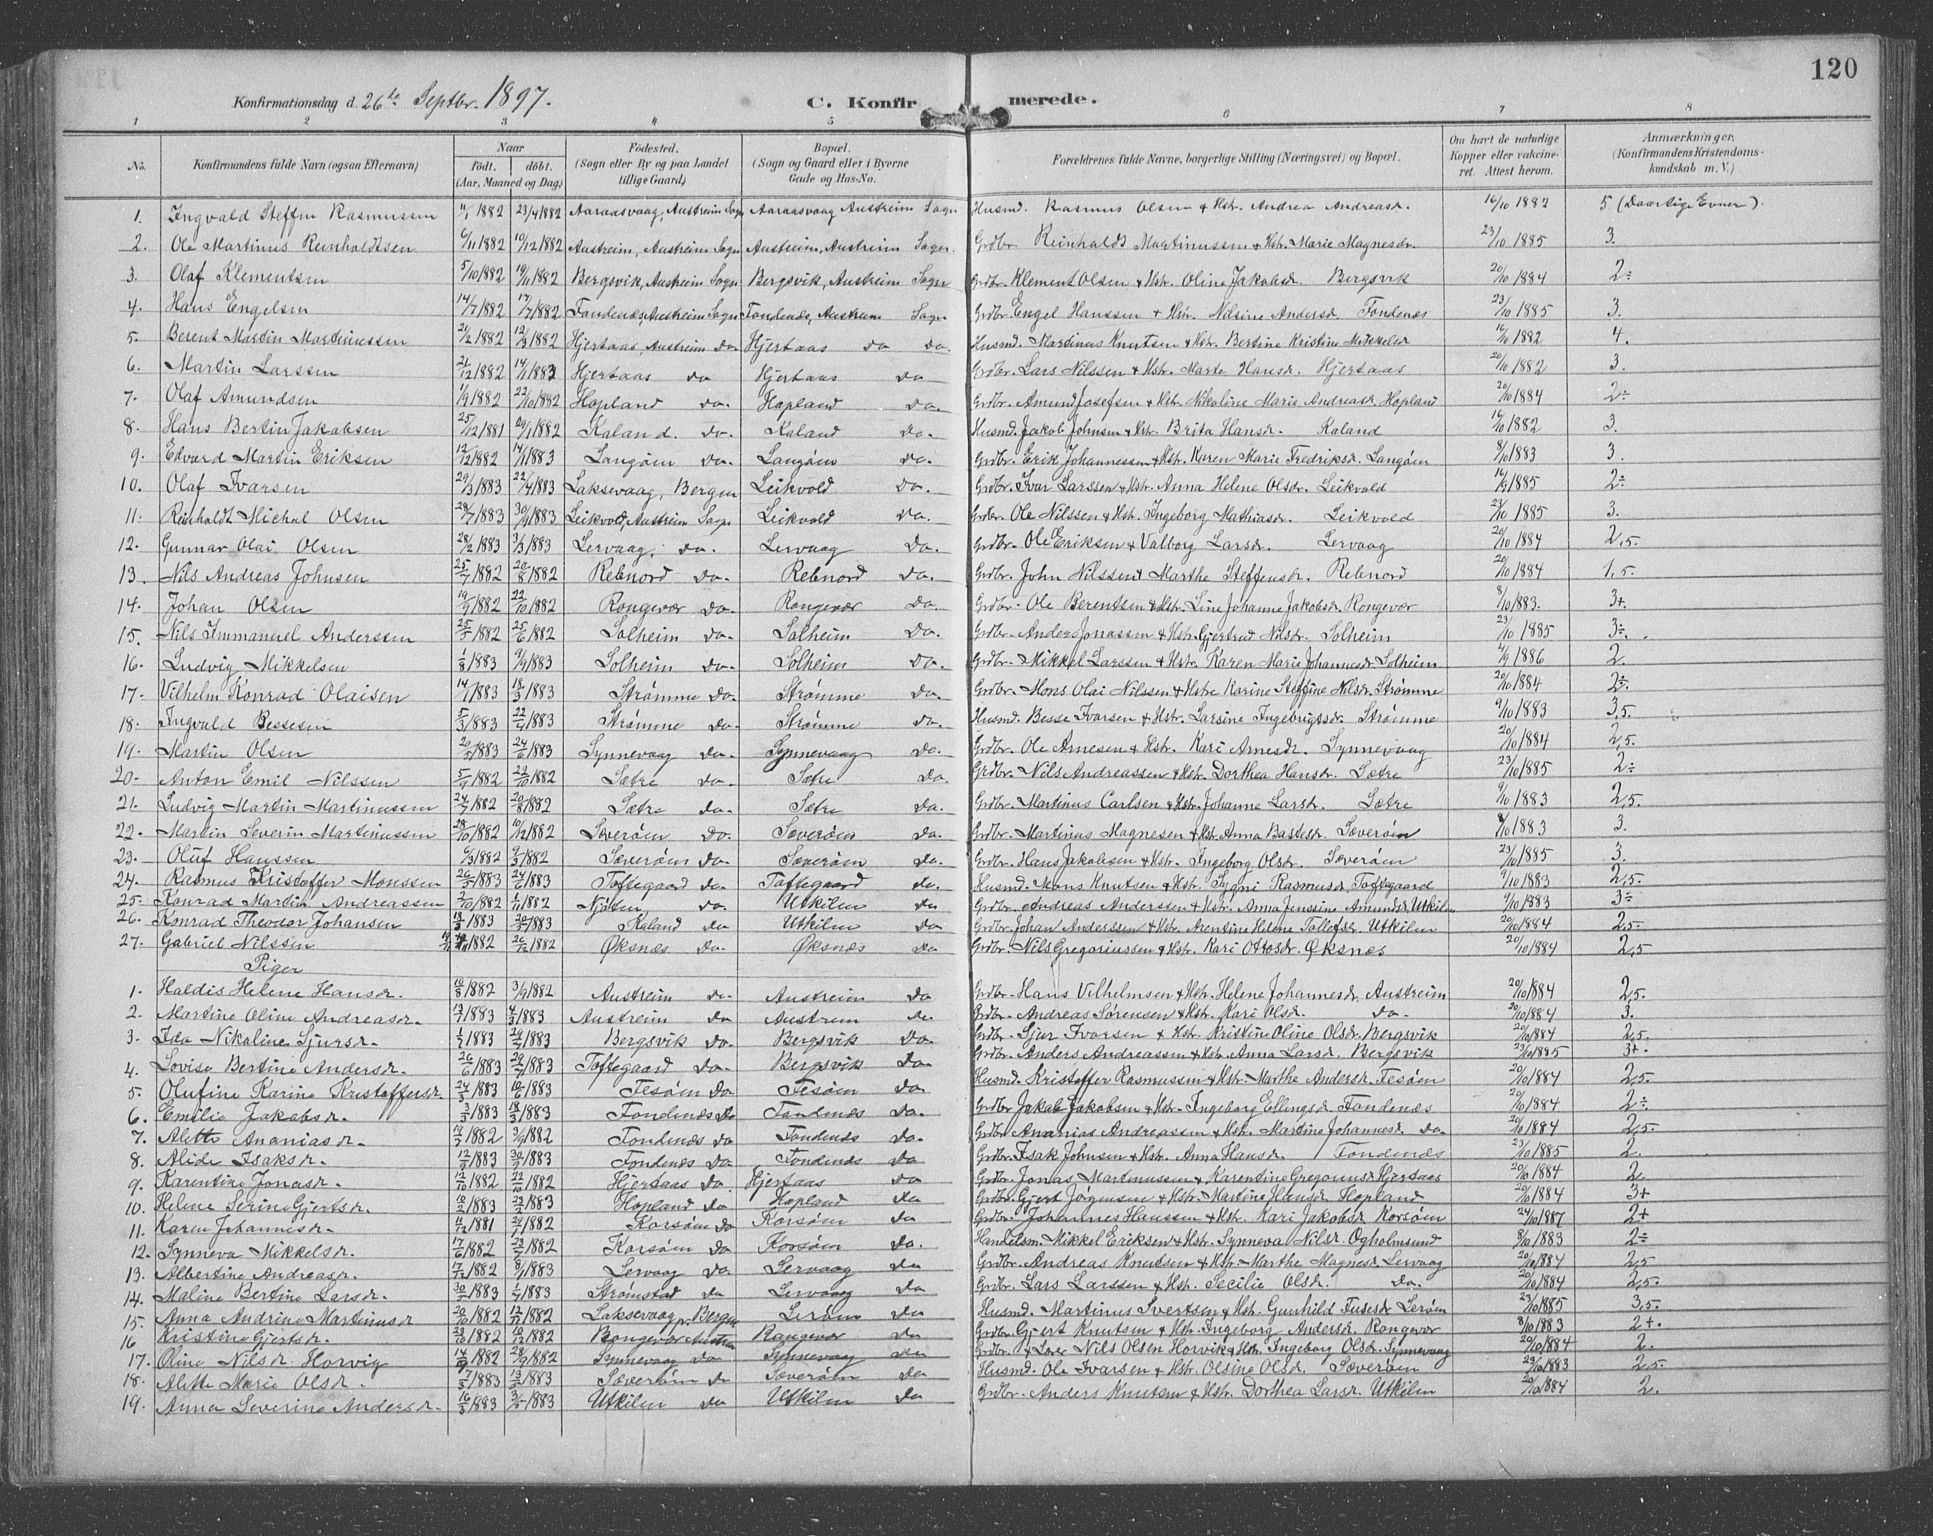 120
Konfirmationsdag d. 26te Septbr. 1897. C. Konfirmerede.
1 2 3 4 5 6 7 8
No. Konfirmandens fulde Navn (ogsaa Efternavn) Naar født, døbt. (Aar, Maaned og Dag) Fødested. (Sogn eller By og paa Landet tillige Gaard) Bopæl. (Sogn og Gaard eller i Byerne Gade og Hus-No. Forældrenes fulde Navne, borgerlige Stilling (Næringsvei) og Bopæl. Om havt de naturlige Kopper eller vakcineret. Attest herom. Anmærkninger. (Konfirmandens Kristendomskundskab m. V.)
1. Ingvald Steffen Rasmussen 11/1 1882 23/4 1882 Aaraasvaag, Austreim Sogn Aaraasvaag Austreim Sogn Husmd. Rasmus Olsen & Hstr. Andrea Andreasdr. 16/10 1882 5 (Daarlige Evner).
2. Ole Martinus Reinholdtsen 6/11 1882 10/12 1882 Austreim, Austreim Sogn Austreim, Austreim Sogn. Grdbr. Reinholdt Martinussen & Hstr. Marie Magnesdr. 23/10 1885 3.
3. Olaf Klementsen 5/10 1882 19/11 1882 Bergsvik, Austreim Sogn Bergsvik, Austreim Sogn Grdbr. Klement Olsen & Hstr. Oline Jakobsdr. Bergsvik 20/10 1884 2÷
4. Hans Engelsen 14/7 1882 17/7 1882 Fondenæs, Austreim Sogn Fondenæs, Austreim Sogn Grdbr. Engel Hanssen & Hstr. Nilsine Andersdr. Fondenæs 23/10 1885 3.
5. Berent Martin Martinussen 21/2 1882 12/3 1882 Hjertaas, Austreim do Hjertaas do do. Husmd. Martinus Knutsen & Hstr. Bertine Kristine Mikkelsdr 16/10 1882 4.
6. Martin Larssen 21/12 1882 14/1 1883 Hjertaas do Hjertaas do Grdbr. Lars Nilssen & Hstr. Marte Hansdr. Hjertaas 20/10 1882 3.
7. Olaf Amundsen 1/9 1882 22/10 1882 Hopland do. Hopland do. Grdbr. Amund Josefsen & Hstr. Nikoline Marie Andreasdr Hopland 20/10 1884 2÷
8. Hans Bertin Jakobsen 25/12 1881 29/1 1882 Kaland. do. Kaland do. Husmd. Jakob Johnsen & Hstr. Brita Hansdr. Kaland 16/10 1882 3.
9. Edvard Martin Eriksen 12/12 1882 14/1 1883 Langøen do. Langøen do. Grdbr. Erik Johannessen & Hstr. Karen Marie Fredriksdr. Langøen 8/10 1883 3.
10. Olaf Ivarsen 29/3 1883 22/4 1883 Laksevaag, Bergen Leikvold do. Grdbr. Ivar Larssen & Hstr. Anna Helene Olsdr. Leikvold 16/9 1885 2÷
11. Reinholdt Michal Olsen 28/7 1883 30/9 1883 Leikvold, Austreim Sogn Leikvold do. Grdbr. Ole Nilssen & Hstr. Ingeborg Mathiasdr. Leikvold 23/10 1885 3.
12. Gunnar Olai Olsen 28/2 1883 3/3 1883 Lervaag, do. Lervaag do. Grdbr. Ole Eriksen & Valborg Larsdr. Lervaag 20/10 1884 2,5.
13. Nils Andreas Johnsen 25/7 1882 20/8 1882 Rebnord do. Rebnord do. Grdbr. John Nilssen & Marthe Steffensdr. Rebnord 20/10 1884 1,5.
14. Johan Olsen 19/9 1882 22/10 1882 Rongevær do. Rongevær do. Grdbr. Ole Berentsen & Hstr. Line Johanne Jakobsdr. Rongevær 8/10 1883. 3+
15. Nils Immanuel Anderssen 25/5 1882 25/6 1882 Solheim do. Solheim do. Grdbr. Anders Jonassen & Hstr. Gjertrud Nilsdr. Solheim 23/10 1885 3÷
16. Ludvig Mikkelsen 1/8 1883 9/9 1883 Solheim do. Solheim do. Grdbr. Mikkel Larssen & Hstr. Karen Marie Johannesdr. Solheim 4/9 1886 2.
17. Vilhelm Konrad Olaisen 14/1 1883 18/3 1883 Strømme do. Strømme do. Grdbr. Mons Olai Nilssen & Hstr. Karine Steffine Nilsdr. Strømme 20/10 1884 2÷
18. Ingvald Bessesen 5/3 1883 22/4 1883 Strømme do. Strømme do. Husmd. Besse Ivarsen & Hstr. Larsine Ingebrigtsdr. Strømme 9/10 1883 3,5.
19. Martin Olsen 20/5 1883 24/6 1883 Synnevaag do. Synnevaag do. Grdbr. Ole Arnesen & Hstr. Kari Arnesdr. Synnevaag 20/10 1884 2,5.
20. Anton Emil Nilssen 5/9 1882 22/10 1882 Sætre do. Sætre do Grdbr. Nils Andreassen & Hstr. Dorthea Hansdr. Sætre 23/10 1885 2÷
21. Ludvig Martin Martinussen 24/7 1882 20/8 1882 Sætre do. Sætre do. Grdbr. Martinus Carlsen & Hstr. Johanne Larsdr. Sætre 9/10 1883 2,5.
22. Martin Severin Martinussen 28/10 1882 10/12 1882 Sæverøen do. Sæverøen do. Grdbr. Martinus Magnesen & Hstr. Anna Bastesdr. Sæverøen 8/10 1883 3.
23. Oluf Hanssen 6/3 1882 9/3 1882 Sæverøen do. Sæverøen do. Grdbr. Hans Jakobsen & Hstr. Ingeborg Olsdr. Sæverøen 23/10 1885 3.
24. Rasmus Kristoffer Monssen 26/5 1883 24/6 1883 Toftegaard do. Toftegaard do. Husmd. Mons Knutsen & Hstr. Sygni Rasmusdr. Toftegaard 9/10 1883 2,5.
25. Konrad Martin Andreassen 2/10 1882 1/11 1882 Njøten do. Utkilen do Grdbr. Andreas Anderssen & Hstr. Anna Jenssine Amundsdr. Utkilen 9/10 1883 3÷
26. Konrad Theodor Johansen 18/3 1883 20/5 1883 Kaland do Utkilen do Grdbr. Johan Anderssen & Hstr. Arentine Helene Tollefsdr. Utkilen 20/10 1884 2,5.
27. Gabriel Nilssen 1882 26/12 1882 Øksnæs do. Øksnæs do Grdbr. Nils Gregoriussen & Hstr. Kari Ottosdr. Øksnæs 20/10 1884 2,5.
Piger
1. Haldis Helene Hansdr. 16/8 1882 3/9 1882 Austreim do. Austreim do Grdbr. Hans Vilhelmsen & Hstr. Helene Johannesdr. Austreim 20/10 1884 2,5.
2. Martine Oline Andreasdr. 13/1 1883 4/3 1883 Austreim do Austreim do Grdbr. Andreas Sørensen & Hstr. Kari Olsdr. do. 20/10 1884 3.
3. Ida Nikoline Sjursdr. 1883 1883 Bergsvik do. Bergsvik do Grdbr. Sjur Ivarsen & Hstr. Kristine Oline Olsdr. Bergsvik 20/10 1884 2,5.
4. Lovise Bertine Andersdr. 26/6 1883 29/7 1883 Toftegaard do. Bergsvik do. Grdbr. Anders Andreassen & Hstr. Anna Larsdr. Bergsvik 23/10 1885 3+.
5. Olufine Karine Kristoffersdr. 24/5 1883 10/6 1883 Fesøen do Fesøen do. Husmd. Kristoffer Rasmussen & Hstr. Marthe Andersdr. Fesøen 20/10 1884 2,5.
6. Emilie Jakobsdr. 3/3 1883 18/3 1883 Fondenæs do Fondenæs do. Grdbr. Jakob Jakobsen & Hstr. Ingeborg Ellingsdr. Fondenæs 20/10 1884 2÷
7. Alette Ananiasdr. 1882 3/9 1882 Fondenæs do Fondenæs do Grdbr. Ananias Andreassen & Hstr. Martine Johannesdr. do. 20/10 1884 2,5.
8. Alide Isaksdr. 1883 1883 Fondenæs do. Fondenæs do Grdbr. Isak Johnsen & Hstr. Anna Hansdr Fondenæs 23/10 1885 2.
9. Karentine Jonasdr. 12/10 1882 22/10 1882 Hjertaas do. Hjertaas do Grdbr. Jonas Martinussen & Karentine Gregoriusdr Hjertaas 20/10 1884 2.
10. Helene Serine Gjertsdr. 10/2 1883 1883 Hopland do Hopland do Grdbr. Gjert Jørgensen & Hstr. Martine Jensdr Hopland 20/10 1884 3+
11. Karen Johannesdr. 1881 1882 Korsøen do Korsøen do Grdbr. Johannes Hanssen & Hstr. Kari Jakobsdr Korsøen 24/10 1887 2+
12. Synneva Mikkelsdr. 17/6 1882 23/7 1882 Korsøen do Korsøen do. Handelsm. Mikkel Eriksen & Hstr. Synneva Nilsdr. Ogholmsund 8/10 1883 2÷
13. Albertine Andreasdr. 17/12 1882 8/1 1883 Lervaag do. Lervaag do Grdbr. Andreas Knutsen & Hstr. Marthe Magnesdr. Lervaag 20/10 1884 2,5.
14. Maline Bertine Larsdr. 1883 1883 Strømstad do Lervaag do. Grdbr. Lars Larssen & Hstr. Secilie Olsdr. do. 20/10 1884 2,5.
15. Anna Andrine Martinusdr 20/10 1882 12/11 1882 Laksevaag, Bergen Lerøen do Husmd. Martinus Ivertsen & Hstr. Gunhild Fusesdr. Lerøen 23/10 1885 3,5.
16 Kristine Gjertsdr. 1882 10/12 1882 Rongevær Rongevær do Grdbr. Gjert Knutsen & Hstr. Ingeborg Andersdr. Rongevær 8/10 1883 2+.
17. Oline Nilsdr. Horvig 14/9 1882 28/9 1882 Synnevaag do Synnevaag do Grdbr. & Nils Olsen Horvik & Hstr. Ingeborg Olsdr. Synnevaag 20/10 1884 2.
18. Alette Marie Olsdr. 7/5 1883 13/5 1883 Sæverøen do Sæverøen do Husmd. Ole Ivarsen & Hstr. Olsine Olsdr. Sæverøen 1883 2,5.
19. Anna Severine Andersdr. 16/3 1883 3/5 1883 Utkilen do Utkilen do Grdbr. Anders Knutsen & Hstr. Dorthea Larsdr. Utkilen 20/10 1884 2.